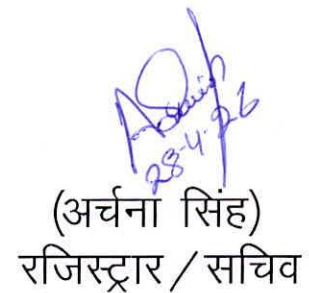 28.4.26
(अर्चना सिंह)
रजिस्ट्रार / सचिव